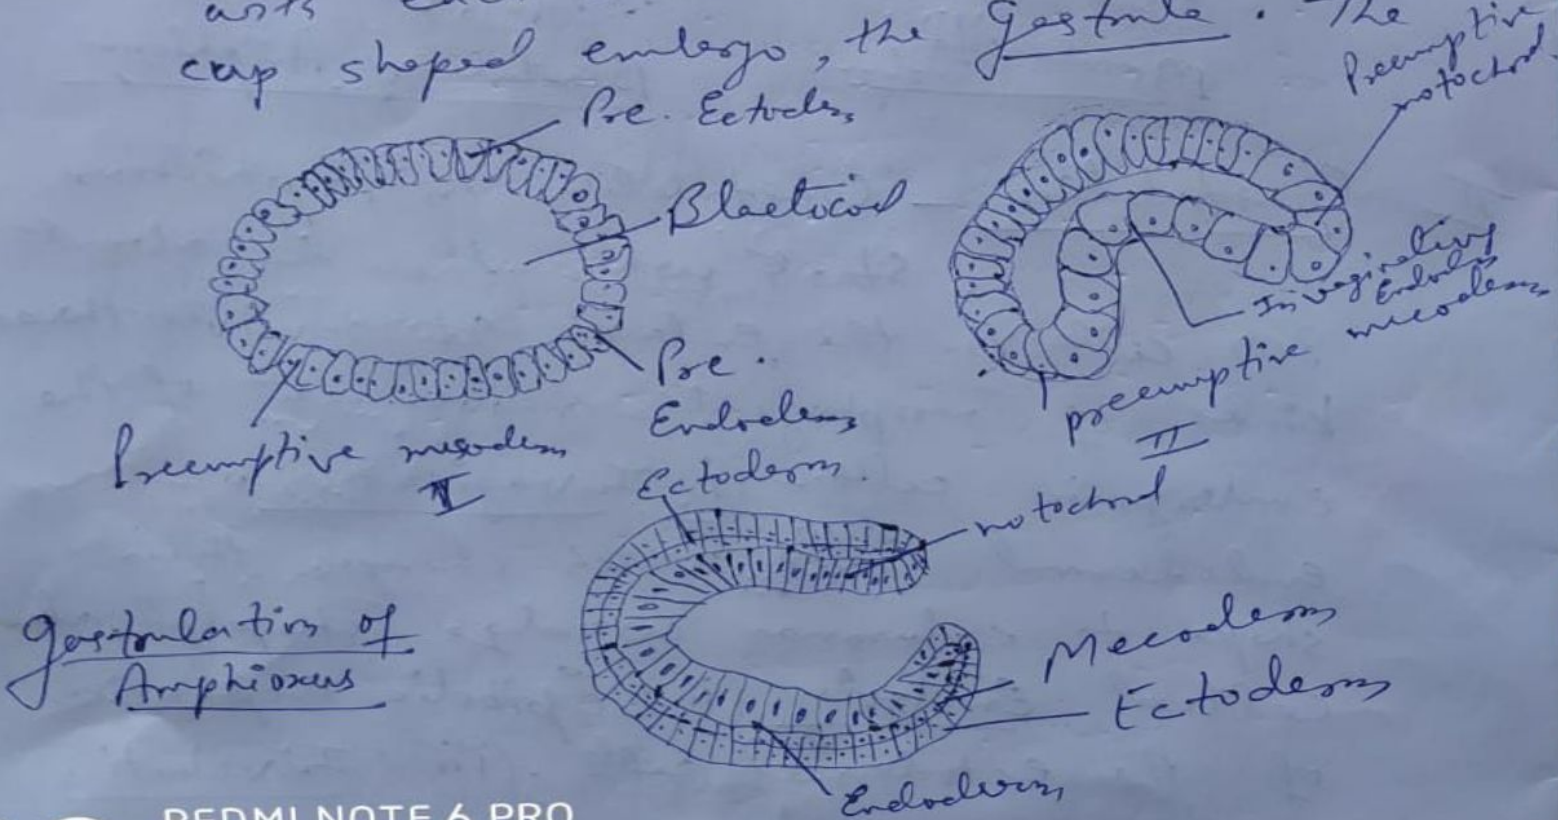 cup shaped embryo, the Gastrula. The
Pre. Ectoderm
Blastocoel
Pre.
Endoderm
Preemptive mesoderm
I
Preemptive
notochord
Invaginating
Endoderm
mecoderm
preemptive
II
Ectoderm
notochord
Mecoderm
Ectoderm
Endoderm
Gastrulation of
Amphioxus
REDMI NOTE 6 PRO